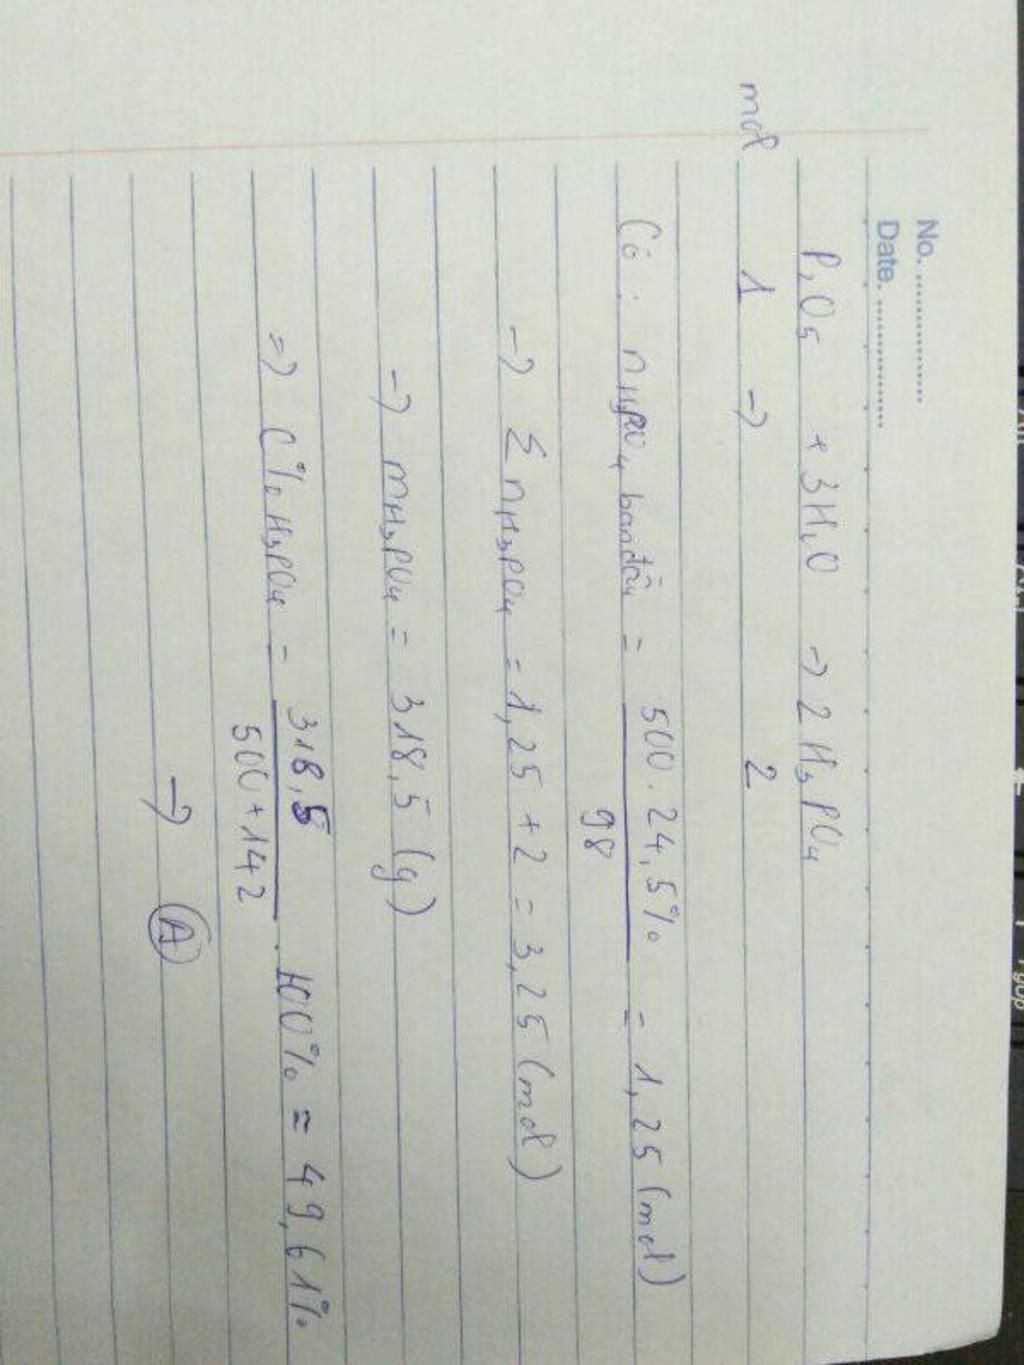 No. ...................
Date. ...................
P₂O₅ + 3H₂O → 2H₃PO₄
mol 1 → 2
Có : nH₃PO₄ ban đầu = 500 . 24,5% / 98 = 1,25 (mol)
→ Σ nH₃PO₄ = 1,25 + 2 = 3,25 (mol)
→ mH₃PO₄ = 318,5 (g)
=> C% H₃PO₄ = 318,5 / 500 + 142 . 100% ≈ 49,61%
→ A